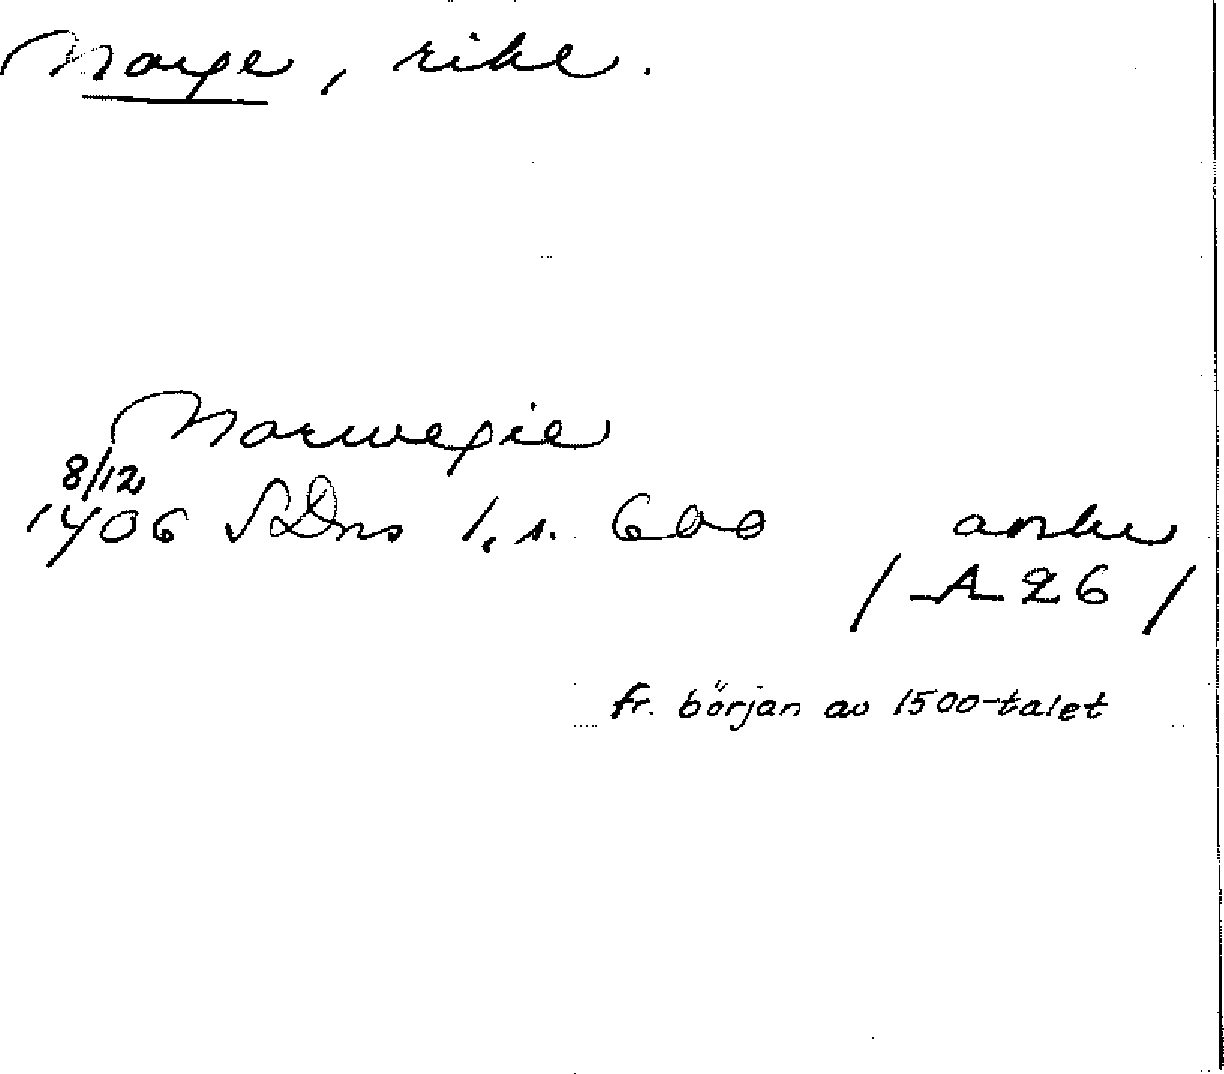 Norge, rike.
Norwegie
8/12
1406 SDns 1, s. 600 avskr
/ A 26 /
fr. början av 1500-talet